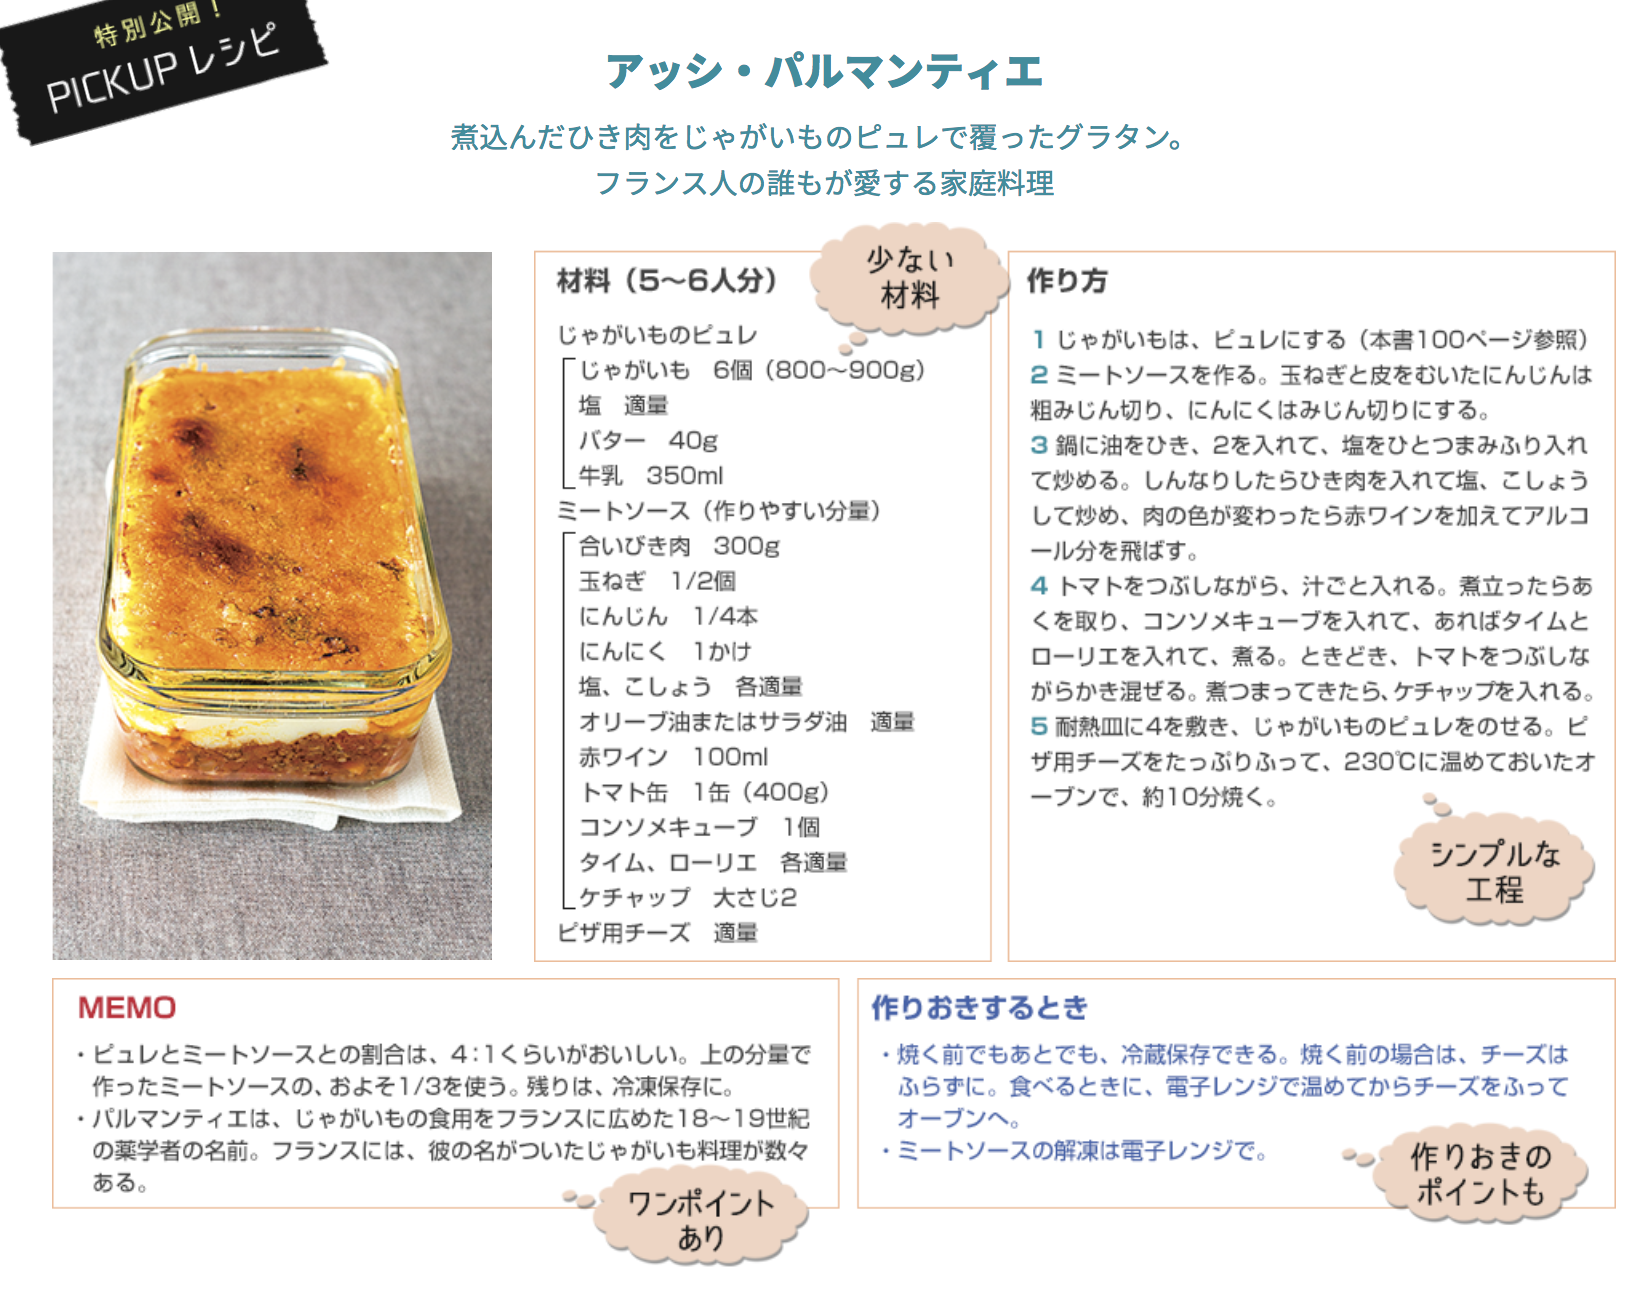 特別公開！
PICKUP レシピ
アッシ・パルマンティエ
煮込んだひき肉をじゃがいものピュレで覆ったグラタン。
フランス人の誰もが愛する家庭料理
材料（5〜6人分）
少ない
材料
じゃがいものピュレ
じゃがいも　6個（800〜900g）
塩　適量
バター　40g
牛乳　350ml
ミートソース（作りやすい分量）
合いびき肉　300g
玉ねぎ　1/2個
にんじん　1/4本
にんにく　1かけ
塩、こしょう　各適量
オリーブ油またはサラダ油　適量
赤ワイン　100ml
トマト缶　1缶（400g）
コンソメキューブ　1個
タイム、ローリエ　各適量
ケチャップ　大さじ2
ピザ用チーズ　適量
作り方
1 じゃがいもは、ピュレにする（本書100ページ参照）
2 ミートソースを作る。玉ねぎと皮をむいたにんじんは
粗みじん切り、にんにくはみじん切りにする。
3 鍋に油をひき、2を入れて、塩をひとつまみふり入れ
て炒める。しんなりしたらひき肉を入れて塩、こしょう
して炒め、肉の色が変わったら赤ワインを加えてアルコ
ール分を飛ばす。
4 トマトをつぶしながら、汁ごと入れる。煮立ったらあ
くを取り、コンソメキューブを入れて、あればタイムと
ローリエを入れて、煮る。ときどき、トマトをつぶしな
がらかき混ぜる。煮つまってきたら、ケチャップを入れる。
5 耐熱皿に4を敷き、じゃがいものピュレをのせる。ピ
ザ用チーズをたっぷりふって、230℃に温めておいたオ
ーブンで、約10分焼く。
シンプルな
工程
MEMO
・ピュレとミートソースとの割合は、4：1くらいがおいしい。上の分量で
作ったミートソースの、およそ1/3を使う。残りは、冷凍保存に。
・パルマンティエは、じゃがいもの食用をフランスに広めた18〜19世紀
の薬学者の名前。フランスには、彼の名がついたじゃがいも料理が数々
ある。
ワンポイント
あり
作りおきするとき
・焼く前でもあとでも、冷蔵保存できる。焼く前の場合は、チーズは
ふらずに。食べるときに、電子レンジで温めてからチーズをふって
オーブンへ。
・ミートソースの解凍は電子レンジで。
作りおきの
ポイントも